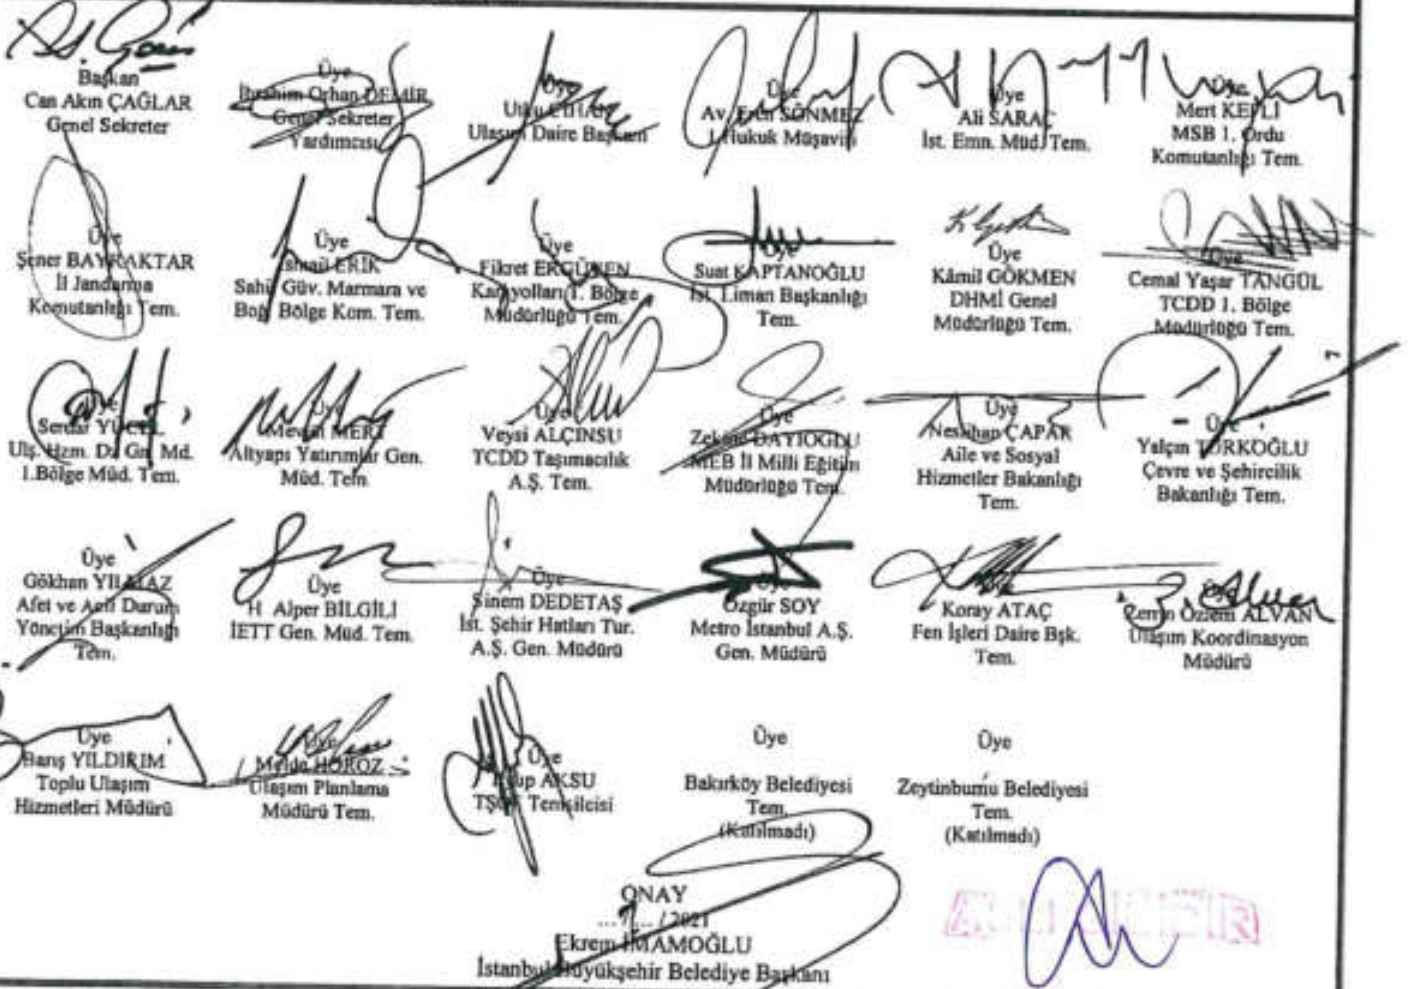 Başkan
Can Akın ÇAĞLAR
Genel Sekreter
Üye
İbrahim Orhan DEMİR
Genel Sekreter
Yardımcısı
Üye
Utku CİHAN
Ulaşım Daire Başkanı
Üye
Av. Eren SÖNMEZ
1.Hukuk Müşaviri
Üye
Ali SARAÇ
İst. Emn. Müd. Tem.
Üye
Mert
MSB 1. Ordu
Komutanlığı Tem.
Üye
Şener BAYRAKTAR
İl Jandarma
Komutanlığı Tem.
Üye
İsmail ERİK
Sahil Güv. Marmara ve
Boğ. Bölge Kom. Tem.
Üye
Fikret
Karayolları 1. Bölge
Müdürlüğü Tem.
Üye
Suat KAPTANOĞLU
İst. Liman Başkanlığı
Tem.
Üye
Kâmil GÖKMEN
DHMİ Genel
Müdürlüğü Tem.
Üye
Cemal Yaşar TANGÜL
TCDD 1. Bölge
Müdürlüğü Tem.
Üye
Serdar YÜCEL
Ulş. Hzm. Dz. Gn. Md.
1.Bölge Müd. Tem.
Üye
Mevlüt MERT
Altyapı Yatırımlar Gen.
Müd. Tem.
Üye
Veysi ALÇINSU
TCDD Taşımacılık
A.Ş. Tem.
Üye
DAYIOĞLU
MEB İl Milli Eğitim
Müdürlüğü Tem.
Üye
Neslihan ÇAPAR
Aile ve Sosyal
Hizmetler Bakanlığı
Tem.
Üye
Yalçın TÜRKOĞLU
Çevre ve Şehircilik
Bakanlığı Tem.
Üye
Gökhan YILMAZ
Afet ve Acil Durum
Yönetim Başkanlığı
Tem.
Üye
H Alper BİLGİLİ
İETT Gen. Müd. Tem.
Üye
Sinem DEDETAŞ
İst. Şehir Hatları Tur.
A.Ş. Gen. Müdürü
Üye
Özgür SOY
Metro İstanbul A.Ş.
Gen. Müdürü
Koray ATAÇ
Fen İşleri Daire Bşk.
Tem.
Üye
Zerrin Özlem ALVAN
Ulaşım Koordinasyon
Müdürü
Üye
Barış YILDIRIM
Toplu Ulaşım
Hizmetleri Müdürü
Üye
Melda HOROZ
Ulaşım Planlama
Müdürü Tem.
Üye
Eyup AKSU
TŞOF Temsilcisi
Üye
Bakırköy Belediyesi
Tem.
(Katılmadı)
Üye
Zeytinburnu Belediyesi
Tem.
(Katılmadı)
ONAY
.../.... / 2021
Ekrem İMAMOĞLU
İstanbul Büyükşehir Belediye Başkanı